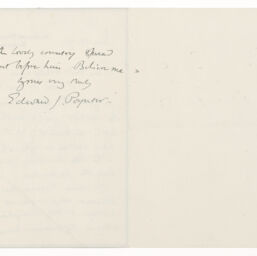 the lovely country spread
out before him. Believe me
Yours very truly
Edward J. Poynter.